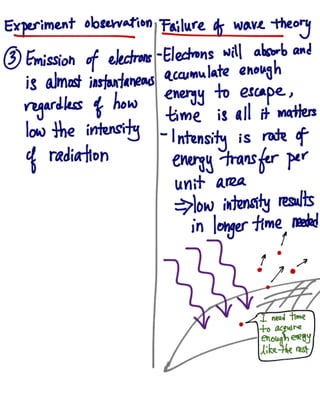 Experiment observation
③ Emission of electrons
is almost instantaneous
regardless of how
low the intensity
of radiation
Failure of wave theory
- Electrons will absorb and
accumulate enough
energy to escape,
time is all it matters
- Intensity is rate of
energy transfer per
unit area
⇒ low intensity results
in longer time needed
I need time
to acquire
enough energy
like the rest